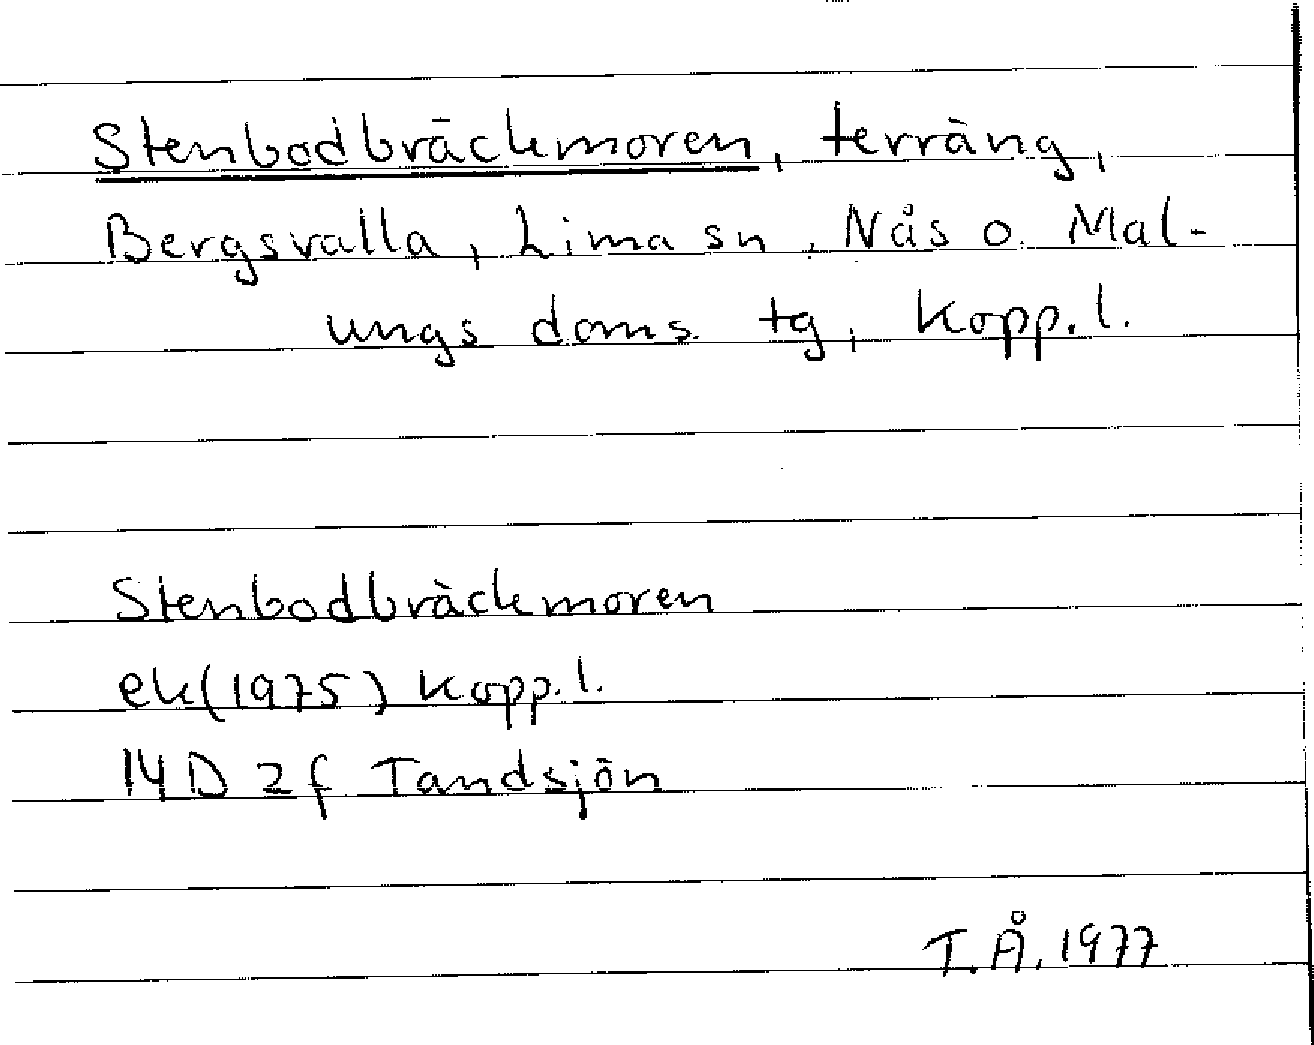 Stenbodbräckmoren, terräng,
Bergsvalla, Lima sn, Nås o. Mal-
ungs doms. tg, Kopp.l.
Stenbodbräckmoren
ek(1975) Kopp.l.
14D 2f Tandsjön
T.Å. 1977